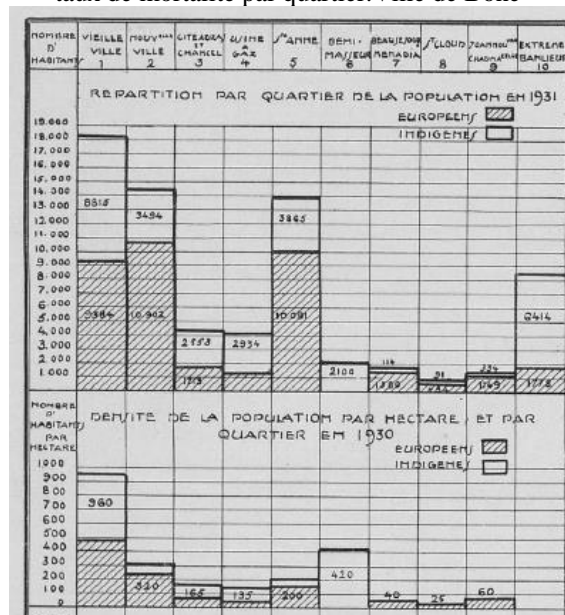 taux de mortalité par quartier.Ville de Bône
NOMBRE D' HABITANTS
VIEILLE VILLE 1
NOUV^ELLE VILLE 2
CHANCEL 3
USINE A GAZ 4
S^TE ANNE 5
DEMI- 6
BEAUSEJOUR MENADIA 7
S^T CLOUD 8
9
EXTREME BANLIEUE 10
REPARTITION PAR QUARTIER DE LA POPULATION EN 1931
EUROPEENS
INDIGENES
19.000
18.000
17.000
16.000
15.000
14.000
13.000
12.000
11.000
10.000
9.000
8.000
7.000
6.000
5.000
4.000
3.000
2.000
1.000
8615 3494 3865
9384 10.902 10.081 6414
2553 2934 2100 114 334
1713 1380 1049 1778
NOMBRE D' HABITANTS PAR HECTARE
DENSITE DE LA POPULATION PAR HECTARE, ET PAR
QUARTIER EN 1930
EUROPEENS
INDIGENES
1000
900
800
700
600
500
400
300
200
100
0
960 320 165 135 200 420 40 25 60